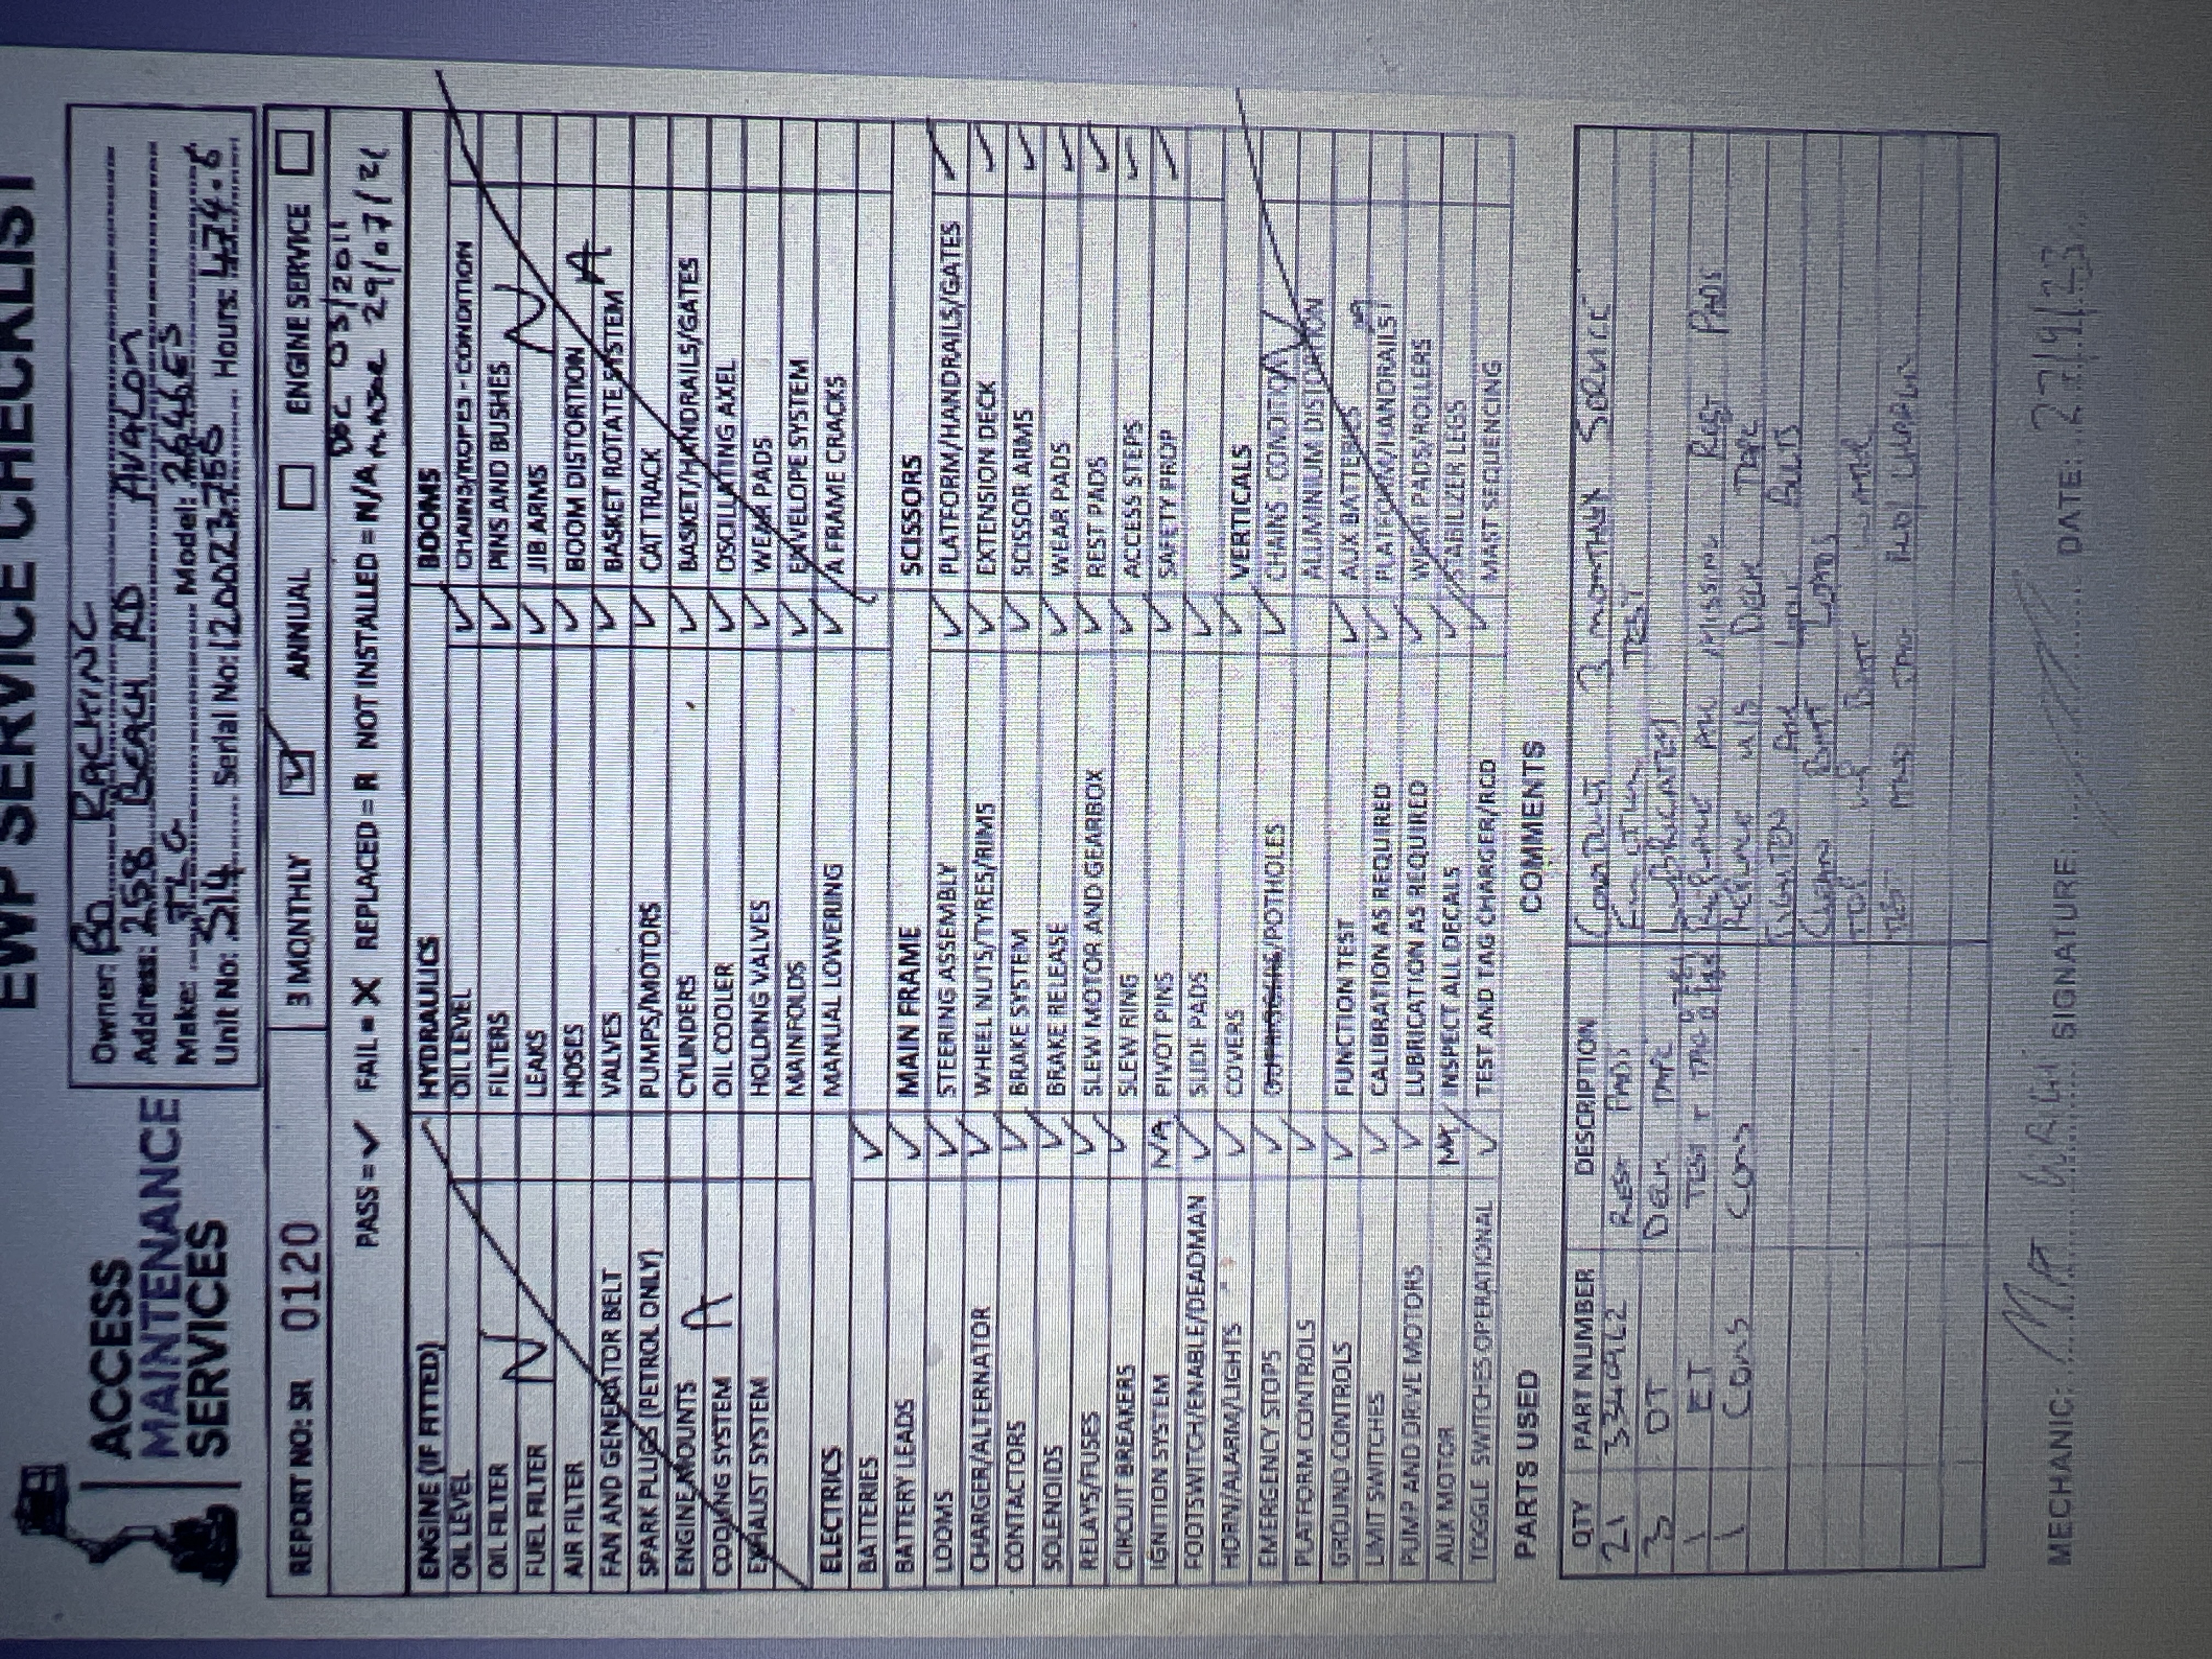 EWP SERVICE CHECKLIST
ACCESS
MAINTENANCE
SERVICES
Owner: BO RACKING
Address: 258 BEACH RD AVALON
Make: JLG Model: 2646ES
Unit No: S14 Serial No: 120023756 Hours: 474.6
REPORT NO: SR 0120
3 MONTHLY ✓ ANNUAL ENGINE SERVICE
DOC 03/2011
PASS = ✓ FAIL = X REPLACED = R NOT INSTALLED = N/A 29/07/21
ENGINE (IF FITTED)
OIL LEVEL
OIL FILTER
FUEL FILTER
AIR FILTER
FAN AND GENERATOR BELT
SPARK PLUGS (PETROL ONLY)
ENGINE MOUNTS
COOLING SYSTEM
EXHAUST SYSTEM
N A
ELECTRICS
BATTERIES ✓
BATTERY LEADS ✓
LOOMS ✓
CHARGER/ALTERNATOR ✓
CONTACTORS ✓
SOLENOIDS ✓
RELAYS/FUSES ✓
CIRCUIT BREAKERS ✓
IGNITION SYSTEM NA
FOOTSWITCH/ENABLE/DEADMAN ✓
HORN/ALARM/LIGHTS ✓
EMERGENCY STOPS ✓
PLATFORM CONTROLS ✓
GROUND CONTROLS ✓
LIMIT SWITCHES ✓
PUMP AND DRIVE MOTORS ✓
AUX MOTOR NA
TOGGLE SWITCHES OPERATIONAL ✓
HYDRAULICS
OIL LEVEL ✓
FILTERS ✓
LEAKS ✓
HOSES ✓
VALVES ✓
PUMPS/MOTORS ✓
CYLINDERS ✓
OIL COOLER ✓
HOLDING VALVES ✓
MAINFOLDS ✓
MANUAL LOWERING ✓
MAIN FRAME
STEERING ASSEMBLY ✓
WHEEL NUTS/TYRES/RIMS ✓
BRAKE SYSTEM ✓
BRAKE RELEASE ✓
SLEW MOTOR AND GEARBOX ✓
SLEW RING ✓
PIVOT PINS ✓
SLIDE PADS ✓
COVERS ✓
OUTRIGGERS/POTHOLES ✓
FUNCTION TEST ✓
CALIBRATION AS REQUIRED ✓
LUBRICATION AS REQUIRED ✓
INSPECT ALL DECALS ✓
TEST AND TAG CHARGER/RCD
BOOMS
CHAINS/ROPES - CONDITION
PINS AND BUSHES
JIB ARMS
BOOM DISTORTION
BASKET ROTATE SYSTEM
CAT TRACK
BASKET/HANDRAILS/GATES
OSCILLATING AXEL
WEAR PADS
ENVELOPE SYSTEM
A FRAME CRACKS
N A
SCISSORS
PLATFORM/HANDRAILS/GATES ✓
EXTENSION DECK ✓
SCISSOR ARMS ✓
WEAR PADS ✓
REST PADS ✓
ACCESS STEPS ✓
SAFETY PROP ✓
VERTICALS
CHAINS CONDITION
ALUMINIUM DISTORTION
AUX BATTERIES
PLATFORM/HANDRAILS
WEAR PADS/ROLLERS
STABILIZER LEGS
MAST SEQUENCING
PARTS USED
COMMENTS
QTY PART NUMBER DESCRIPTION
21 3340962 REST PADS
3 DT DECK TAPE
1 ET TEST + TAG
1 CONS CONS
CONDUCT 3 MONTHLY SERVICE
FUNCTION TEST
LUBRICATED
REPLACE ALL MISSING REST PADS
REPLACE DECK TAPE
TIGHTEN ALL
CLEAN
TOP UP WATER
TEST TAG
MECHANIC: SIGNATURE DATE: